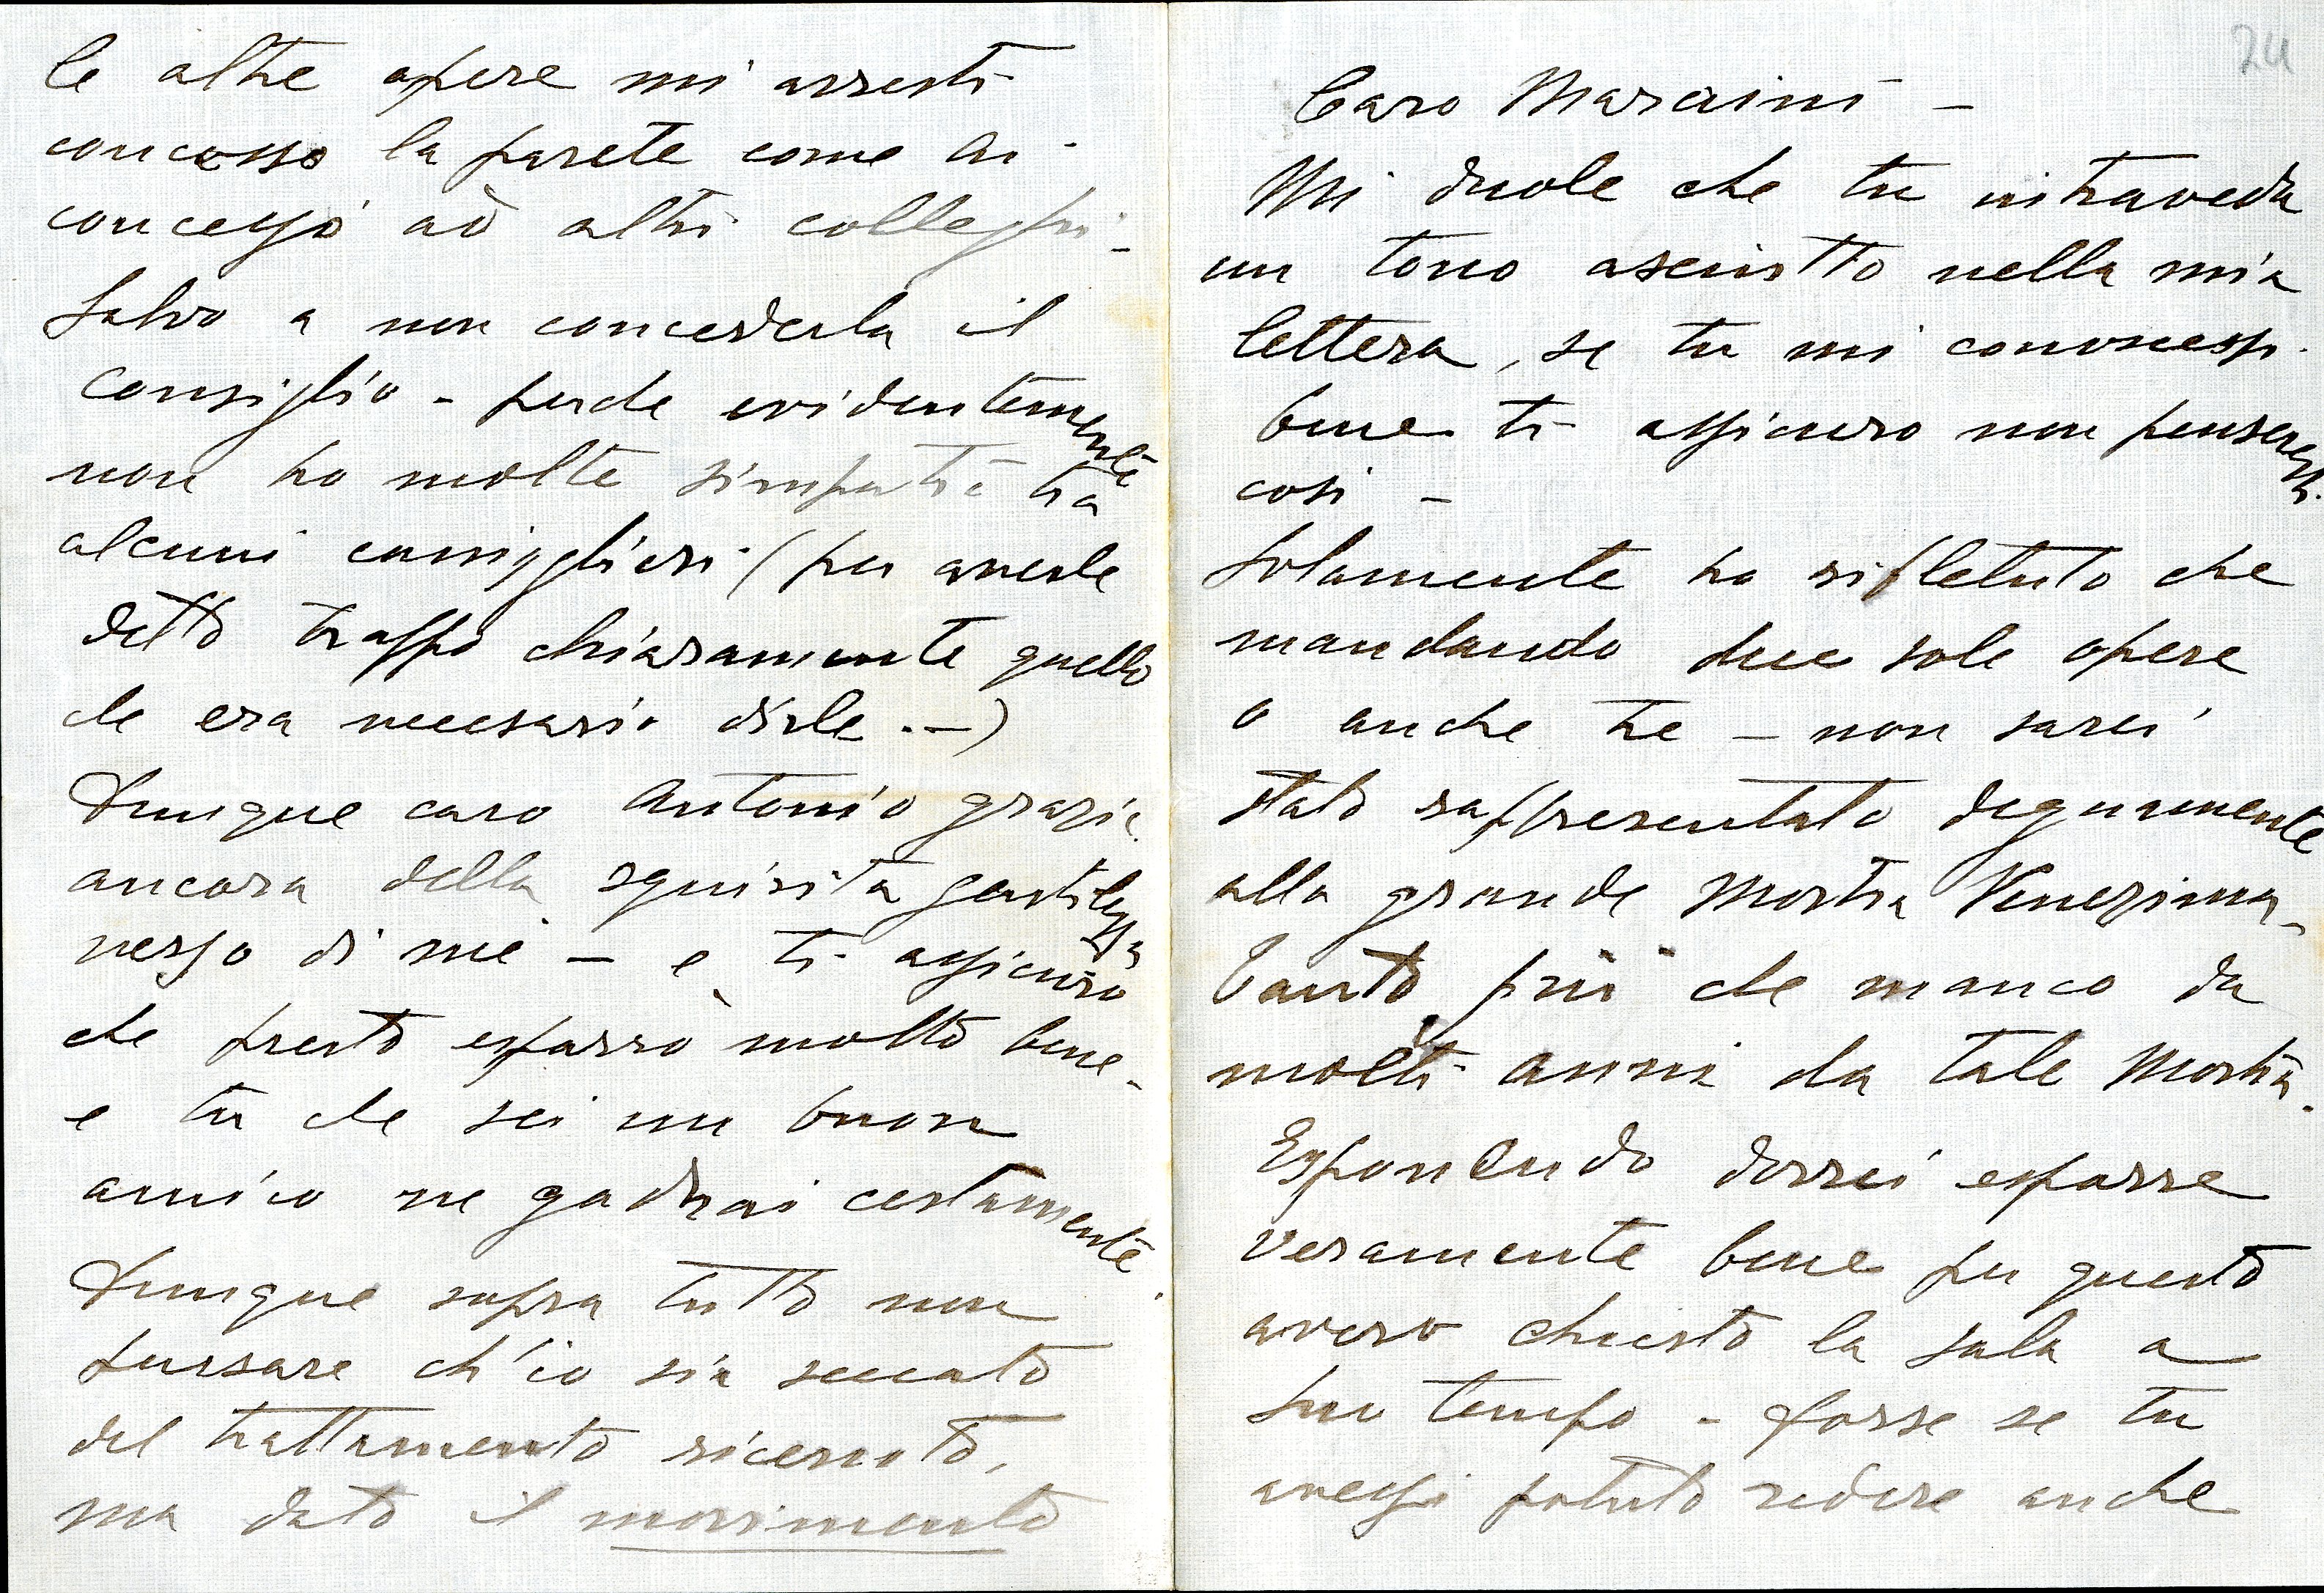 24
Caro Maraini –
Mi duole che tu intraveda
un tono asciutto nella mia
lettera, se tu mi conoscessi
bene ti assicuro non penseresti
cosi –
Solamente ho rifletuto che
mandando due sole opere
o anche tre – non sarei
stato rappresentato degnamente
alla grande Mostra Veneziana –
Tanto più che manco da
molti anni da tale Mostra.
Esponendo dorrei esporre
veramente bene per questo
avevo chiesto la sala a
suo tempo – Forse se tu
avessi potuto vedere anche
le altre opere mi avresti
concesso la parete come ai
concesso ad altri colleghi –
Salvo a non concederla il
Consiglio – perche evidentemente
non ho molte simpatie tra
alcuni consigglieri (per averle
detto troppo chiaramente quello
che era necesario dirle . –)
Dunque caro Antonio grazie
ancora della squisita gentilezza
verso di me – e ti assicuro
che presto esporrò molto bene –
e tu che sei un buon
amico ne godrai certamente.
Dunque sopra tutto non
pensare ch'io sia seccato
del trattamento ricevuto,
ma dato il movimento